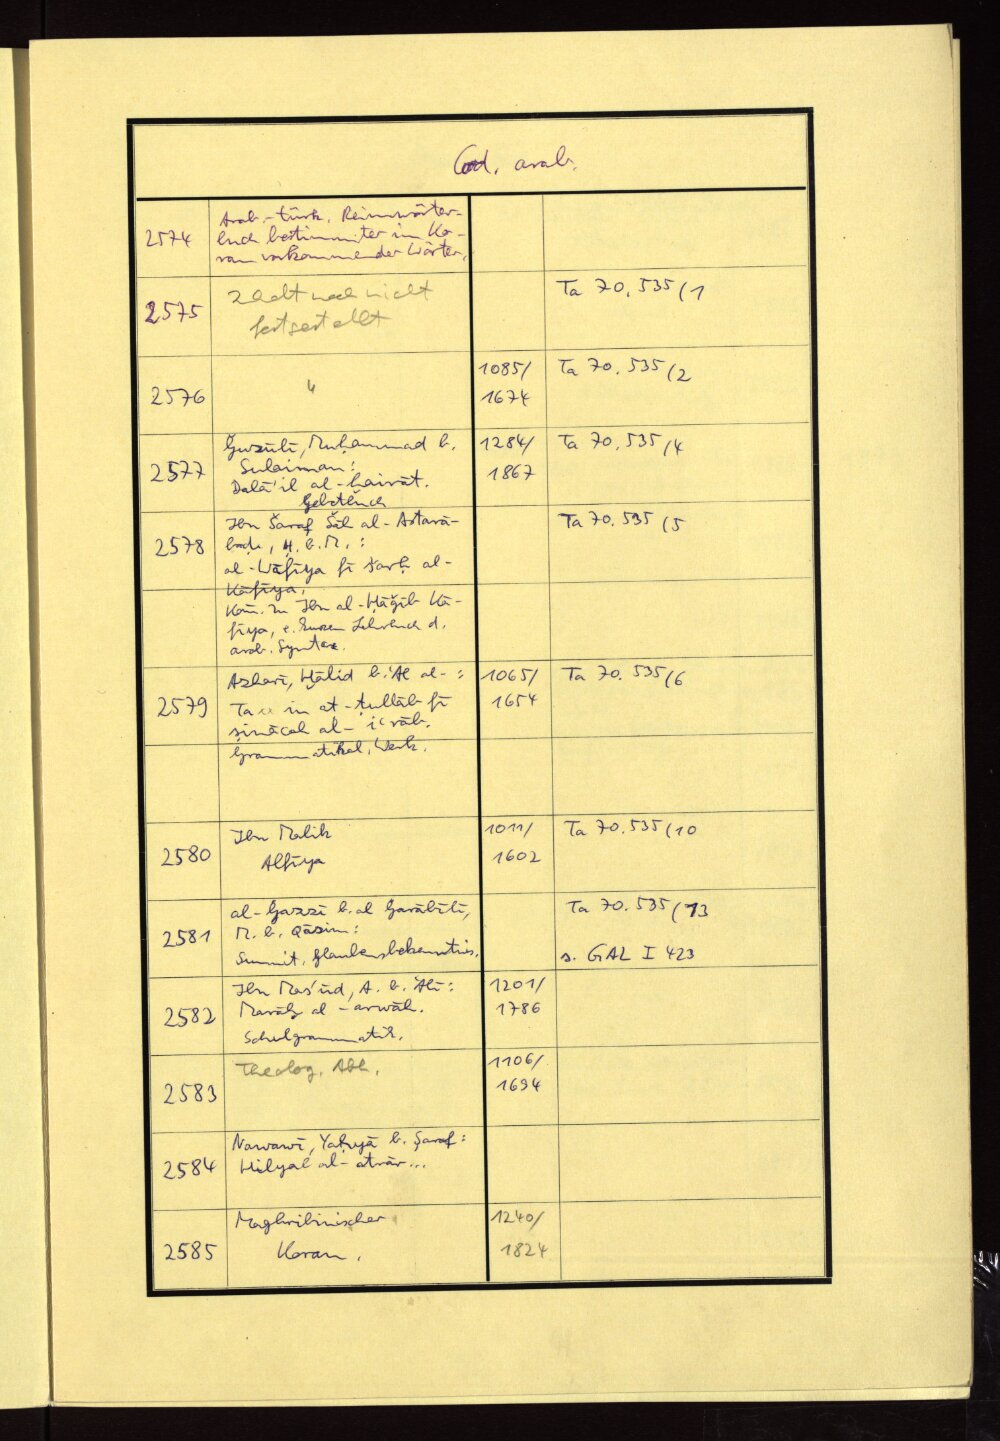 Cod. arab.
2574
Arab.-türk. Reimwörter-
buch bestimmter im Ko-
ran vorkommender Wörter.
2575
Inhalt noch nicht
festgestellt
Ta 70.535/1
2576
"
1085/
1674
Ta 70.535/2
2577
Ǧuzūlī, Muḥammad b.
Sulaimān:
Dalā'il al-ḫairāt.
Gebetbuch
1284/
1867
Ta 70.535/4
2578
Ibn Šaraf Šāh al-Astarā-
bādī, H. b. M.:
al-Wāfiya fī šarḥ al-
Kāfiya.
Kom. zu Ibn al-Ḥāǧib Kā-
fiya, e. kurzen Lehrbuch d.
arab. Syntax.
Ta 70.535/5
2579
Azharī, Ḫālid b. 'Al al-:
in aṭ-ṭullāb fī
ṣināʿat al-iʿrāb.
Grammatikal. Werk.
1065/
1654
Ta 70.535/6
2580
Ibn Malik
Alfiya
1011/
1602
Ta 70.535/10
2581
al-Ġazzī b. al Ġarābīlī,
M. b. Qāsim:
Sunnit. Glaubensbekenntnis.
Ta 70.535/13
s. GAL I 423
2582
Ibn Mas'ūd, A. b. 'Alī:
Marāḥ al-arwāḥ.
Schulgrammatik.
1201/
1786
2583
Theolog. Abh.
1106/
1694
2584
Nawawī, Yaḥyā b. Šaraf:
Ḥilyat al-abrār...
2585
Maghribinischer
Koran.
1240/
1824